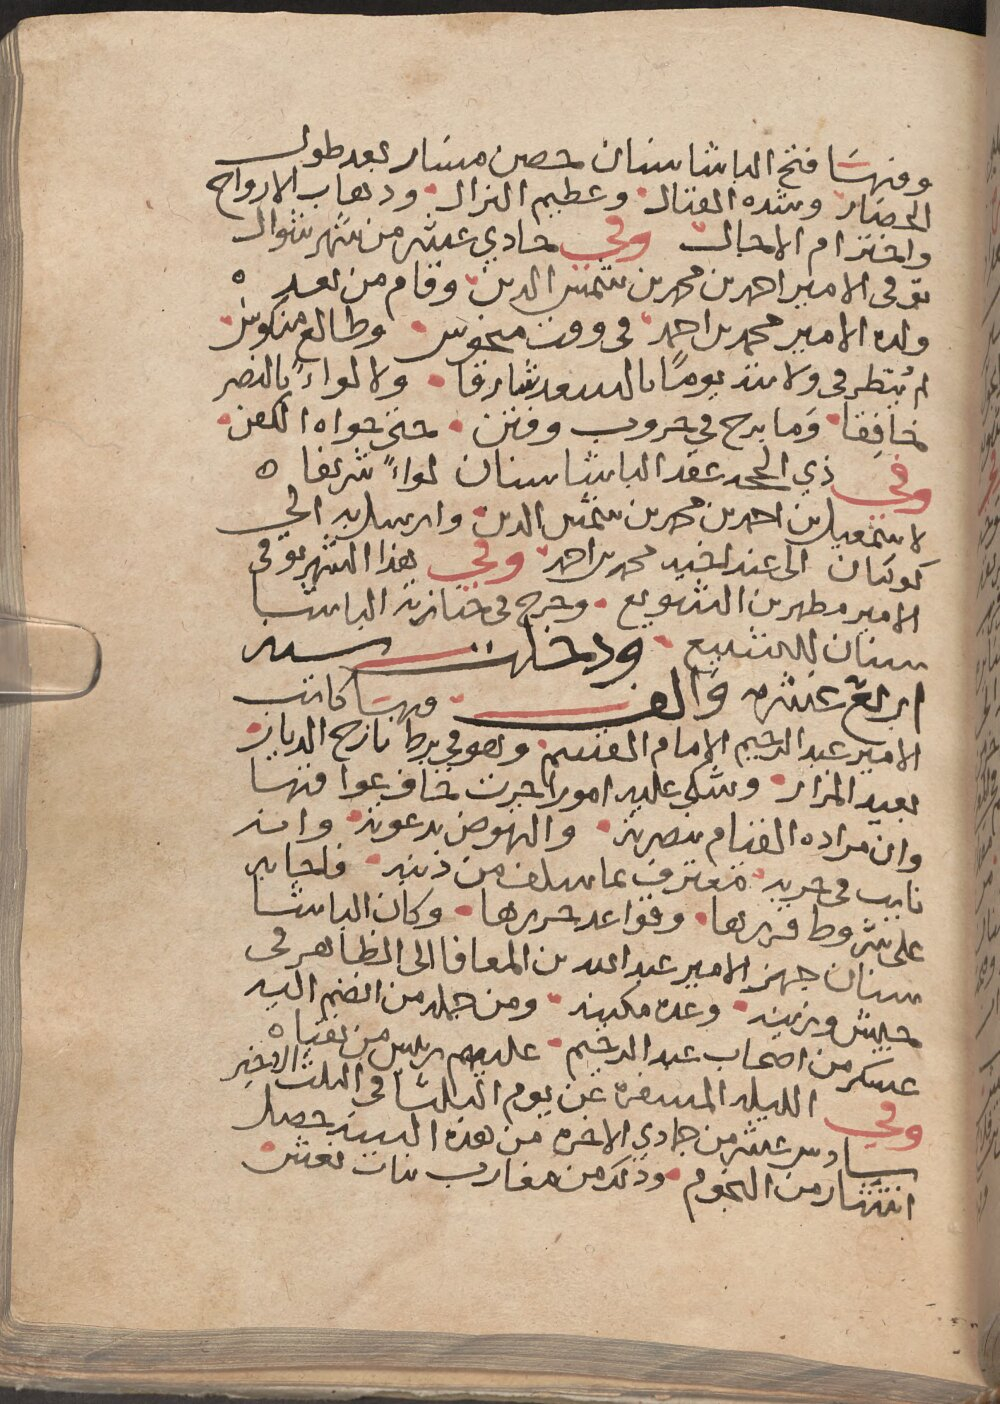 ومنها فتح الباشا سنان حصن مسار بعد طول
الحصار وشده القتال وعظيم النزال وذهاب الارواح
واخترام الاجال وفي حادي عشر من شهر شوال
توفى الامير احمد بن محمد بن شمس الدين وقام من بعده
ولده الامير محمد بن احمد في وقت منحوس وطالع منكوس
لم ينظر في ولايته يومًا بالسعد شارقا ولا لواءً بالنصر
خافقا وما برح في حروب وفتن حتى حواه الكفن
وفي ذي الحجه عقد الباشا سنان لواءً شريفا
لاسمعيل بن احمد بن محمد بن شمس الدين وارسل به الى
كوكبان الى عند اخيه محمد بن احمد وفي هذا الشهر توفى
الامير مطهر بن الشويع وخرج في جنازته الباشا
سنان للتشييع ودخلت سنه
اربع عشره والف ومنها كاتب
الامير عبد الرحيم الامام القسم وهو في برط نازح الديار
بعيد المزار وشكى عليه امورا جرت خاف عواقبها
وان مراده القيام بنصرته والنهوض بدعوته وانه
تايب في حربه معترف بما سلف من ذنبه فاجابه
على شروط قررها وقواعد حررها وكان الباشا
سنان جهز الامير عبد الله بن المعافا الى الظاهر في
جيش وزينه وعده مكينه ومن جمله من انضم اليه
عسكر من اصحاب عبد الرحيم عليهم ريس من نقباه
وفي الليله المسفره عن يوم الثلثا في الثلث الاخير
سادس عشر من جمادي الاخره من هذه السنه حصل
انتثار من النجوم وذلك من مغارب بنات نعش